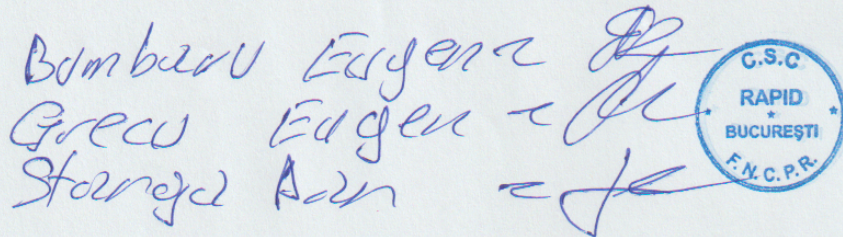 Bumbaru Eugen -
Grecu Eugen -
Stanga Dan -
C.S.C
RAPID
*
BUCUREȘTI
F.N.C.P.R.